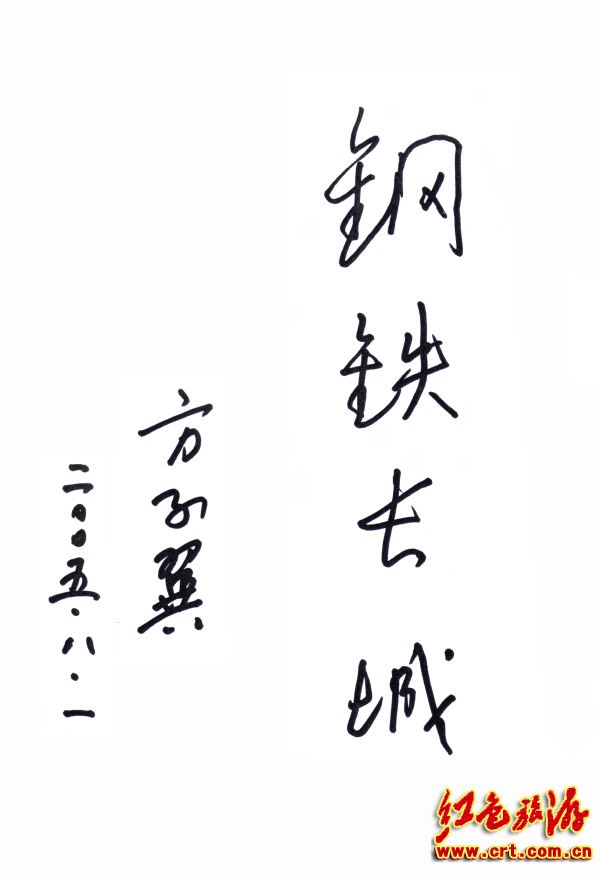 钢铁长城
方子翼
二〇〇五.八.一
红色旅游
www.crt.com.cn